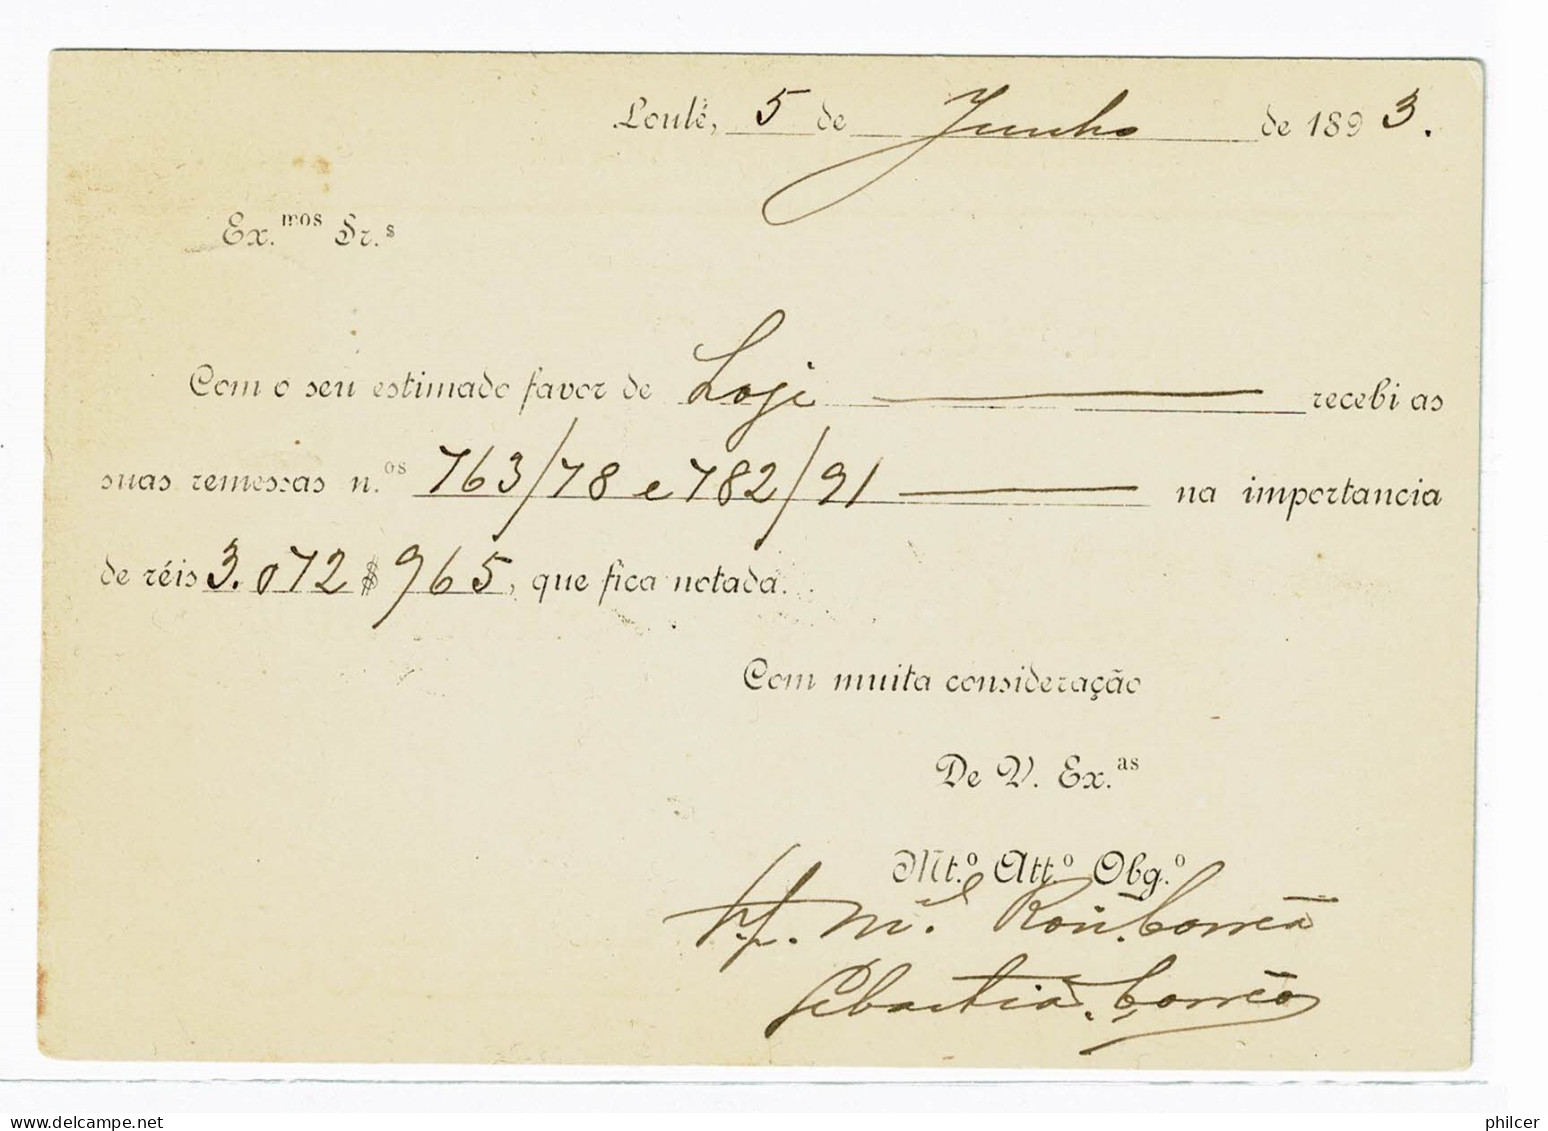 Loulé, 5 de Junho de 1893.
Ex.mos Sr.s
Com o seu estimado favor de Loje recebi as
suas remessas n.os 763/78 e 782/91 na importancia
de réis 3.072$965, que fica notada.
Com muita consideração
De V. Ex.as
Mt.º Att.º Obg.º
M.el Corrêa
Sebastião Corrêa
philcer